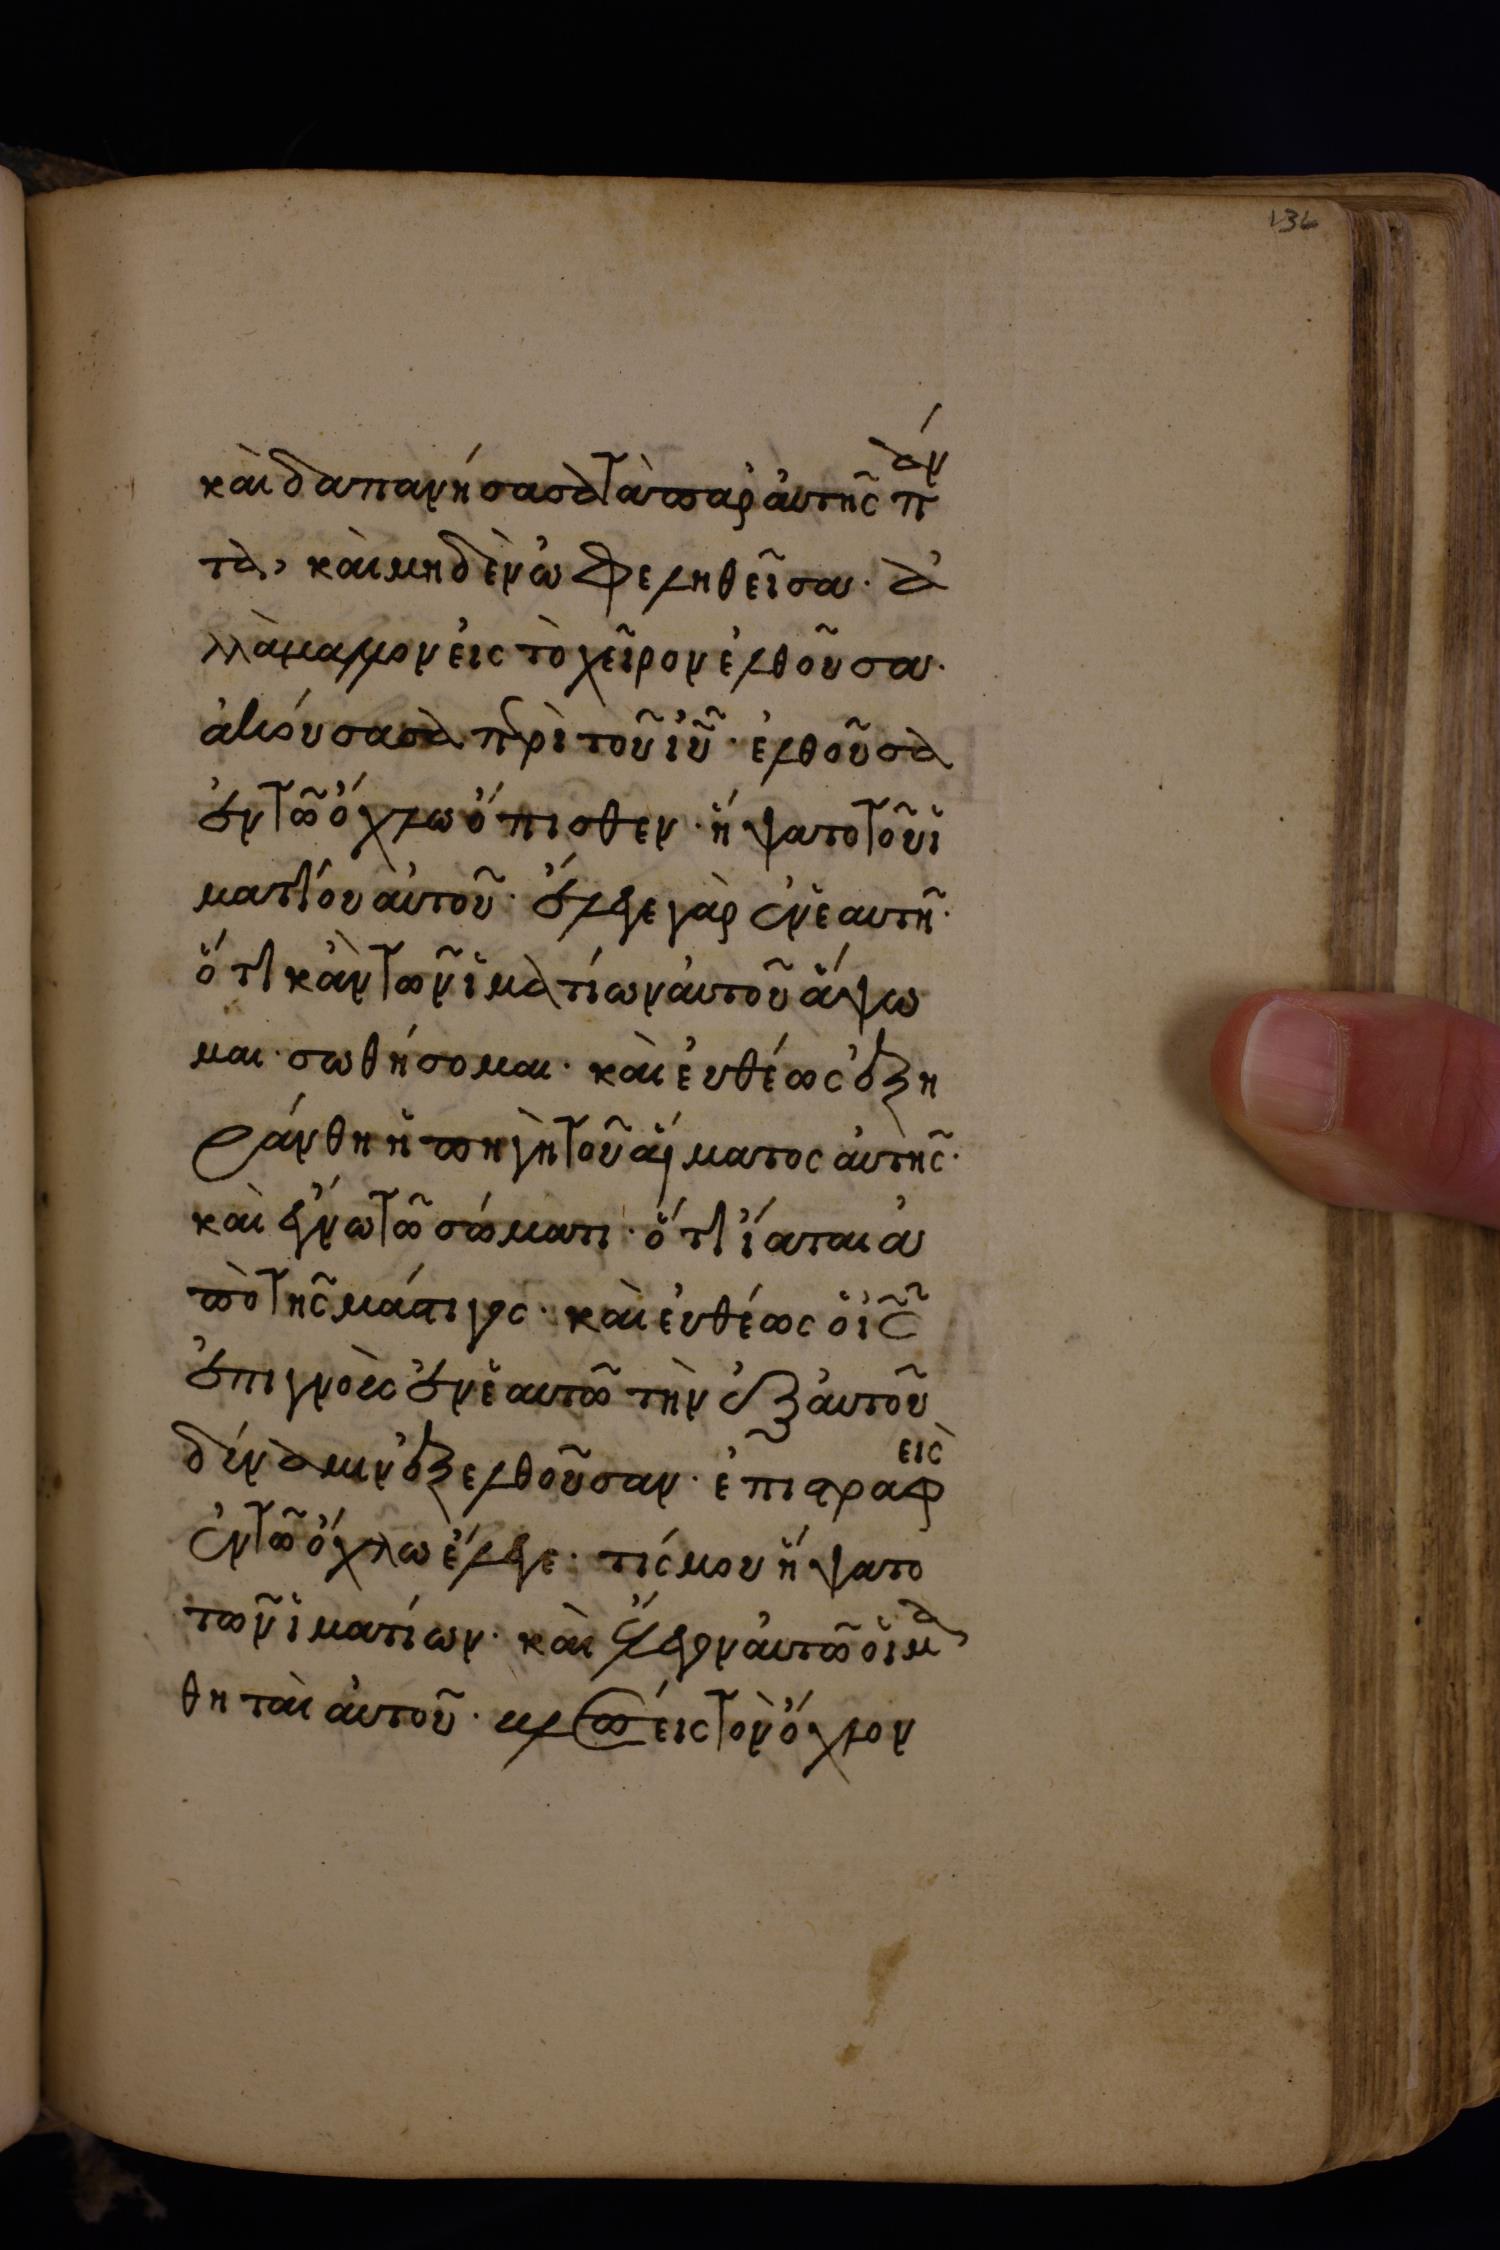 136
καὶ δαπανήσασα τὰ παρ αὐτῆς πάν
τα, καὶ μηδὲν ὠφεληθεῖσα· ἀ
λλὰ μᾶλλον εἰς τὸ χεῖρον ἐλθοῦσα·
ἀκούσασα περὶ τοῦ ἰῦ· ἐλθοῦσα
ἐν τῶ ὄχλω ὄπισθεν· ἥψατο τοῦ ἱ
ματίου αὐτοῦ· ἔλεγε γὰρ ἐν ἑαυτῆ·
ὅτι κὰν τῶν ἱματίων αὐτοῦ ἅψω
μαι· σωθήσομαι· καὶ εὐθέως ἐξη
ράνθη ἡ πηγὴ τοῦ αἵματος αὐτῆς·
καὶ ἔγνω τῶ σώματι· ὅτι ἴαται ἀ
πὸ τῆς μάστιγος· καὶ εὐθέως ὁ ἰς
ἐπιγνοὺς ἐν ἑαυτῶ τὴν ἐξ αὐτοῦ
δύναμιν ἐξελθοῦσαν· ἐπιστραφεὶς
ἐν τῶ ὄχλω ἔλεγε· τίς μου ἥψατο
τῶν ἱματίων· καὶ ἔλεγον αὐτῶ οἱ μα
θηταὶ αὐτοῦ· βλέπεις τὸν ὄχλον